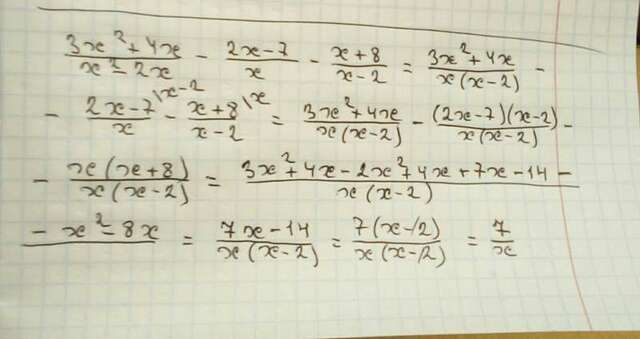 (3x² + 4x)/(x² - 2x) - (2x - 7)/x - (x + 8)/(x - 2) = (3x² + 4x)/(x(x - 2)) -
- (2x - 7)/x \x-2 - (x + 8)/(x - 2) \x = (3x² + 4x)/(x(x - 2)) - ((2x - 7)(x - 2))/(x(x - 2)) -
- (x(x + 8))/(x(x - 2)) = (3x² + 4x - 2x² + 4x + 7x - 14 -)/(x(x - 2))
- x² - 8x = (7x - 14)/(x(x - 2)) = (7(x - 2))/(x(x - 2)) = 7/x